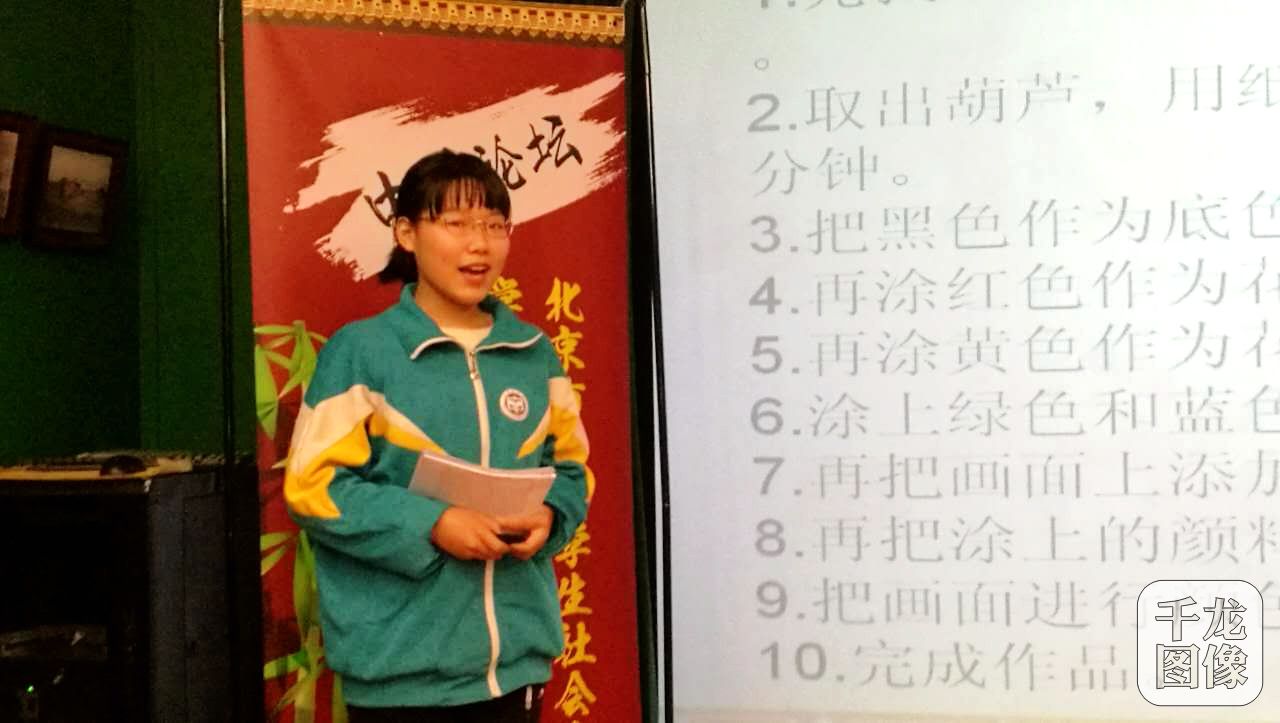 论坛
北京市
学生社会
2.取出葫芦，用纸
分钟。
3.把黑色作为底色
4.再涂红色作为花
5.再涂黄色作为花
6.涂上绿色和蓝色
7.再把画面上添加
8.再把涂上的颜料
9.把画面进行
10.完成作品。
千龙
图像